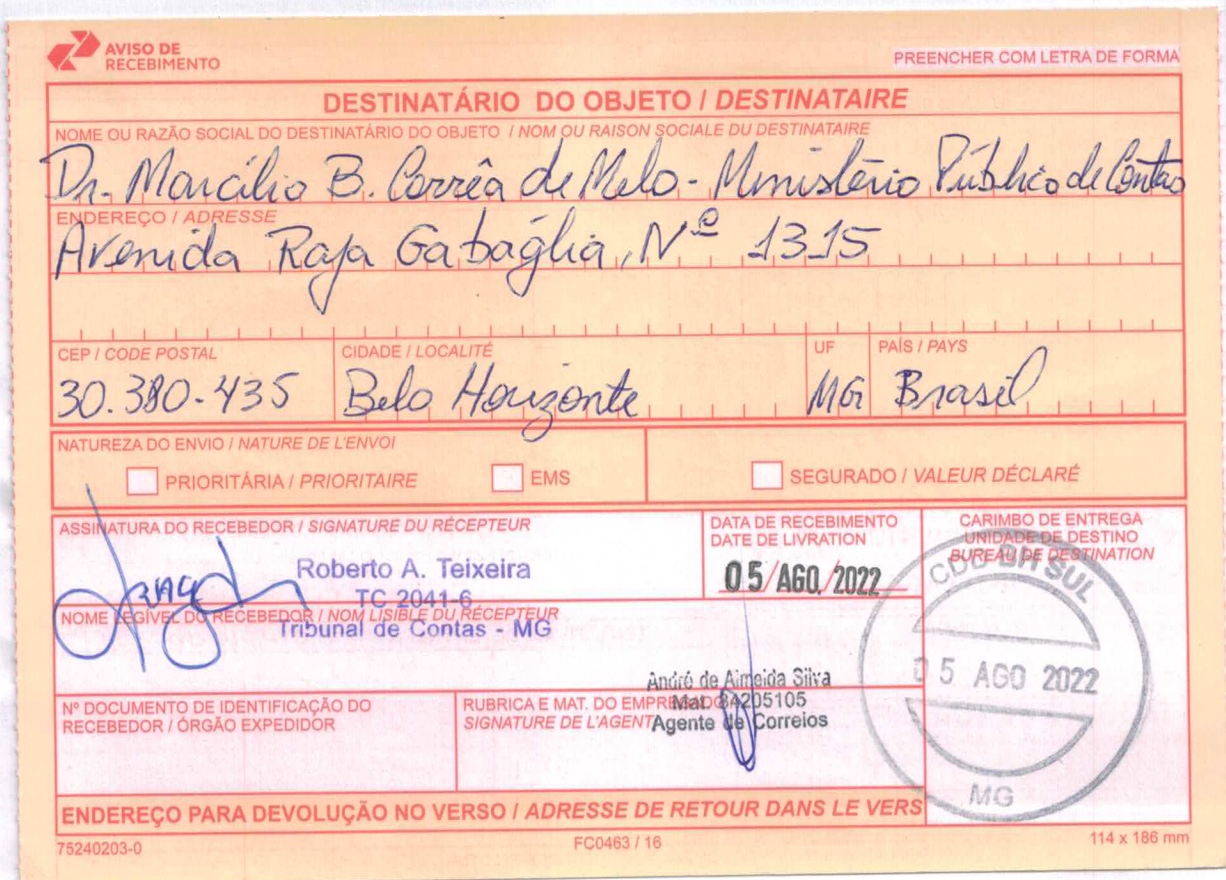 AVISO DE
RECEBIMENTO
PREENCHER COM LETRA DE FORMA
DESTINATÁRIO DO OBJETO / DESTINATAIRE
NOME OU RAZÃO SOCIAL DO DESTINATÁRIO DO OBJETO / NOM OU RAISON SOCIALE DU DESTINATAIRE
Dr. Marcílio B. Corrêa de Melo - Ministério Público de Contas
ENDEREÇO / ADRESSE
Avenida Raja Gabáglia, Nº 1315
CEP / CODE POSTAL
CIDADE / LOCALITÉ
UF
PAÍS / PAYS
30.380-435
Belo Horizonte
MG
Brasil
NATUREZA DO ENVIO / NATURE DE L'ENVOI
PRIORITÁRIA / PRIORITAIRE
EMS
SEGURADO / VALEUR DÉCLARÉ
ASSINATURA DO RECEBEDOR / SIGNATURE DU RÉCEPTEUR
Roberto A. Teixeira
TC 2041-6
Tribunal de Contas - MG
DATA DE RECEBIMENTO
DATE DE LIVRATION
05/AGO/2022
CARIMBO DE ENTREGA
UNIDADE DE DESTINO
BUREAU DE DESTINATION
CDD BH SUL
05 AGO 2022
MG
NOME LEGÍVEL DO RECEBEDOR / NOM LISIBLE DU RÉCEPTEUR
Nº DOCUMENTO DE IDENTIFICAÇÃO DO
RECEBEDOR / ÓRGÃO EXPEDIDOR
RUBRICA E MAT. DO EMPREGADO
SIGNATURE DE L'AGENT
André de Almeida Silva
Mat. 84205105
Agente de Correios
ENDEREÇO PARA DEVOLUÇÃO NO VERSO / ADRESSE DE RETOUR DANS LE VERS
75240203-0
FC0463 / 16
114 x 186 mm